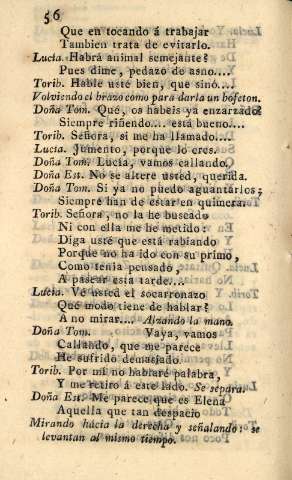 56
Que en tocando á trabajar
Tambien trata de evitarlo.
Lucía. Habrá animal semejante?
Pues dime, pedazo de asno....
Torib. Hable usté bien, que sinó....
Volviendo el brazo como para darla un bofeton.
Doña Tom. Qué, os habeis ya enzarzado?
Siempre riñendo... está bueno...
Torib. Señora, si me ha llamado....
Lucía. Jumento, porque lo eres.
Doña Tom. Lucía, vamos callando.
Doña Est. No se altere usted, querida.
Doña Tom. Si ya no puedo aguantarlos;
Siempre han de estar en quimera.
Torib. Señora, no la he buscado
Ni con ella me he metido:
Diga usté que está rabiando
Porque no ha ido con su primo,
Como tenia pensado,
A pasear esta tarde...
Lucía. Vé usted el socarronazo
Qué modo tiene de hablar?
A no mirar.... Alzando la mano.
Doña Tom. Vaya, vamos
Callando, que me parece
He sufrido demasiado.
Torib. Por mí no hablaré palabra,
Y me retiro á este lado. Se separa.
Doña Est. Me parece que es Elena
Aquella que tan despacio
Mirando hácia la derecha y señalando: se
levantan al mismo tiempo.